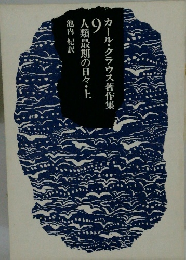 カール・クラウス著作集
9
人類最期の日々・上
池内 紀訳